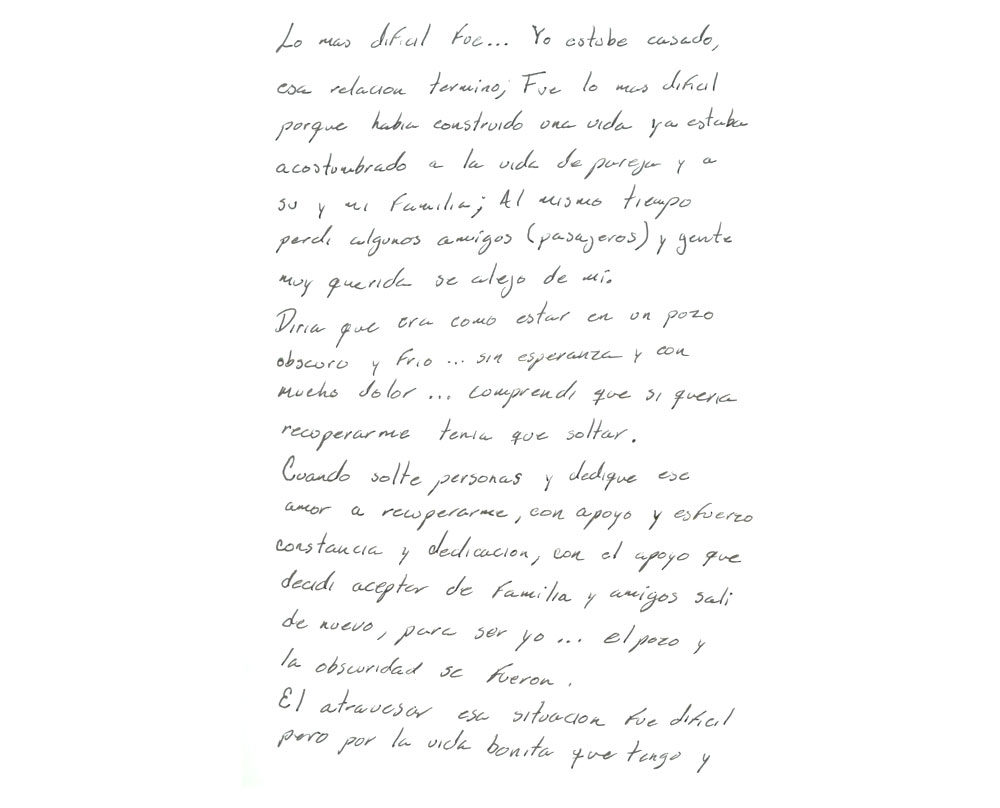 Lo mas dificil fue... Yo estube casado,
esa relacion termino; Fue lo mas dificil
porque habia construido una vida ya estaba
acostumbrado a la vida de pareja y a
su y mi familia; Al mismo tiempo
perdi algunos amigos (pasajeros) y gente
muy querida se alejo de mi.
Diria que era como estar en un pozo
obscuro y frio ... sin esperanza y con
mucho dolor ... comprendi que si queria
recuperarme tenia que soltar.
Cuando solte personas y dedique ese
amor a recuperarme, con apoyo y esfuerzo
constancia y dedicacion, con el apoyo que
decidi aceptar de familia y amigos sali
de nuevo, para ser yo ... el pozo y
la obscuridad se fueron.
El atravesar esa situacion fue dificil
pero por la vida bonita que tengo y